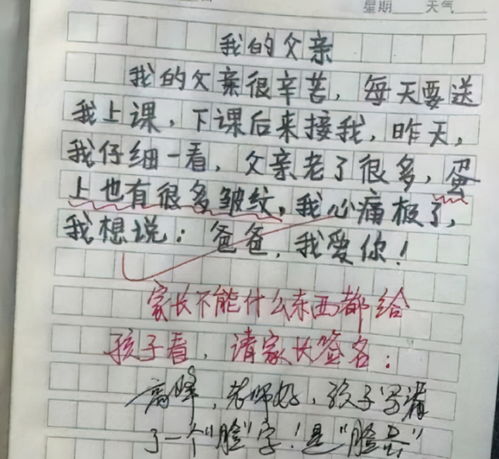 星期 天气
我的父亲
我的父亲很辛苦，每天要送
我上课，下课后来接我，昨天，
我仔细一看，父亲老了很多，蛋
上也有很多皱纹，我心痛极了，
我想说：爸爸，我爱你！
家长不能什么东西都给
孩子看，请家长签名：
高峰，老师好，孩子写漏
了一个“脸”字！是“脸蛋”